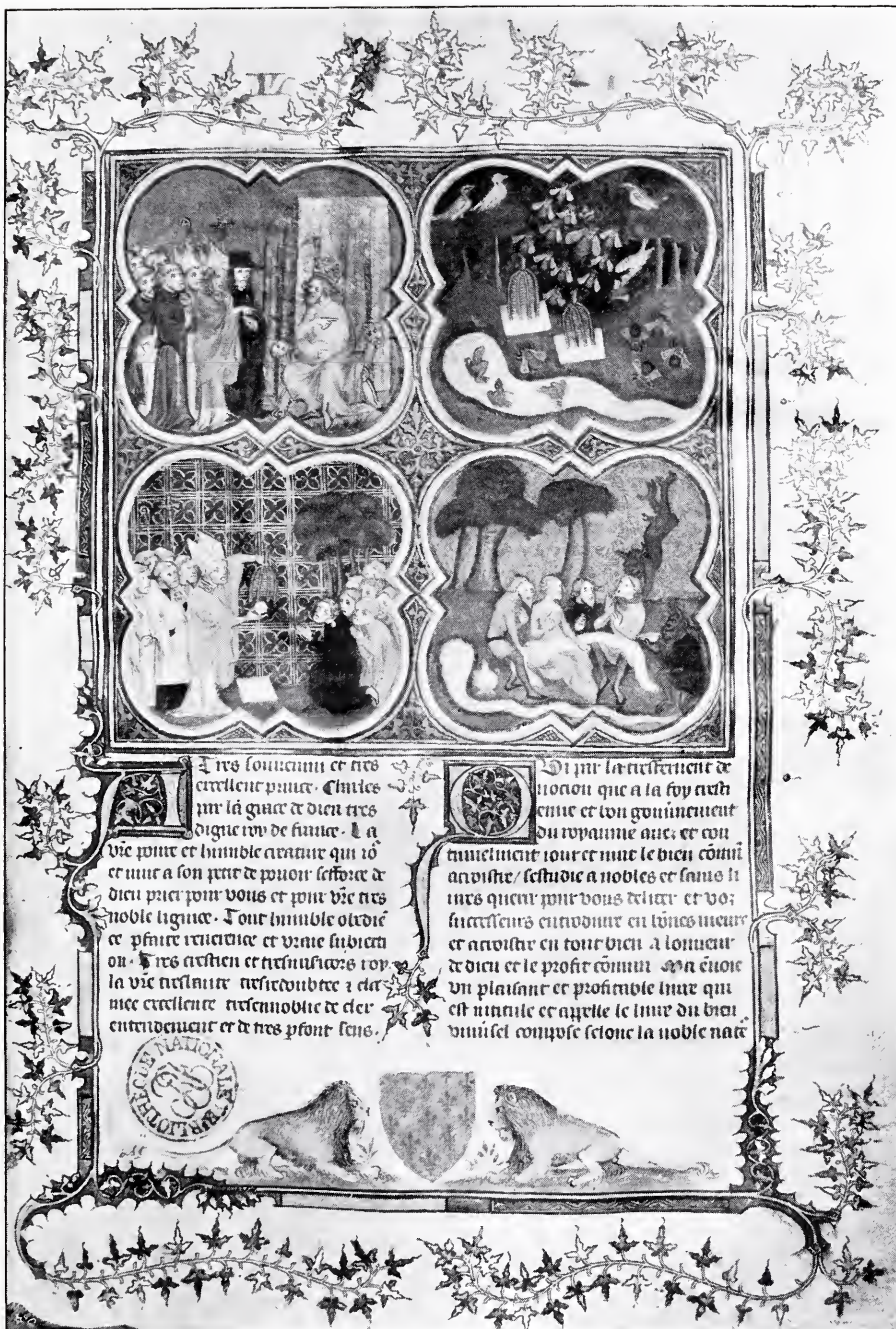 Tres souuerain et tres
excellent prince. Charles
par la grace de dieu tres
digne roy de france. La
vre poure et humble creature qui io
et nuit a son petit de pouoir sefforce de
dieu prier pour vous et pour vre tres
noble lignee. Tout humble obedie
ce pfaite reuerence et vraie subiecti
on. Tres crestien et
la vre tresredoubtee
excellente tresennoblie de cler
entendement et de tres pfont sens.
Qui par la
uocion que a la foy cresti
enne et bon gouuernement
du royaume auez et con
tinuelment iour et nuit le bien comun
acroistre / sestudie a nobles et sains li
ures querir pour vous deliter et voz
successeurs entroduire en bonnes meurs
et acroistre en tout bien a lonneur
de dieu et le profit comun. Ma enuoie
vn plaisant et profitable liure qui
est intitule et appelle le liure du bien
vniuersel compose selonc la noble nate
BIBLIOTHEQUE NATIONALE